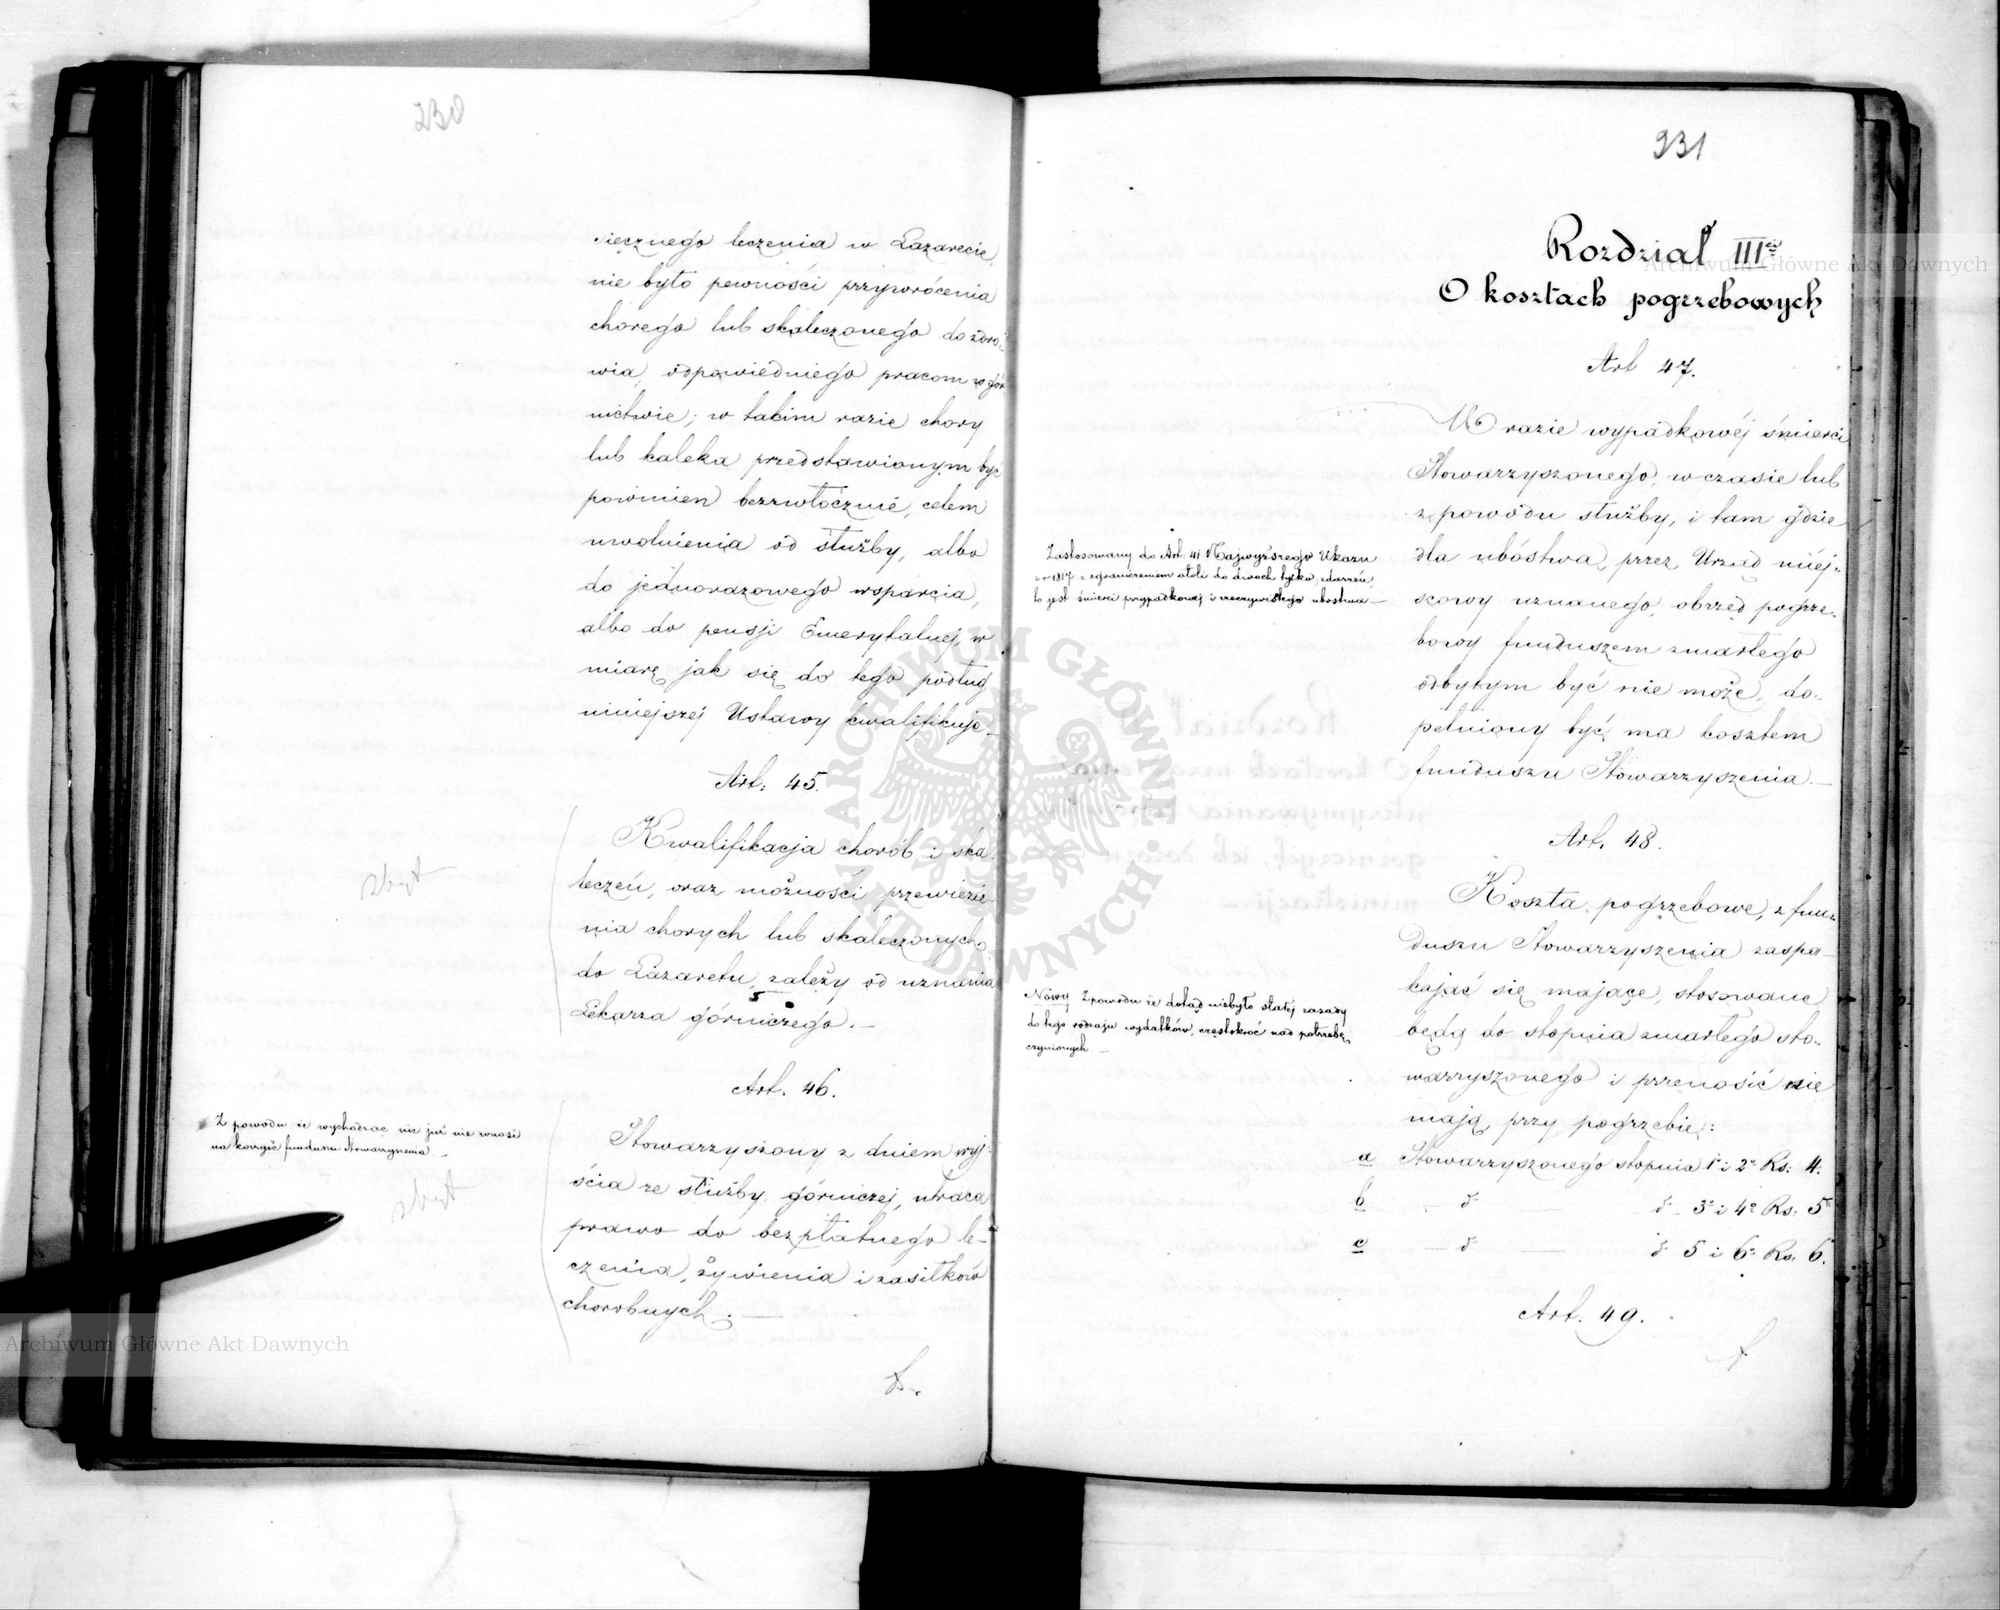 230
sięcznego leczenia w Lazarecie,
nie było pewności przywrócenia
chorego lub skaleczonego do zdro-
wia, odpowiedniego pracom w gór
nictwie; w takim razie chory
lub kaleka przedstawionym być
powinien bezzwłocznie, celem
uwolnienia od służby, albo
do jednorazowego wsparcia,
albo do pensji Emerytalnej, w
miarę jak się do tego podług
niniejszej Ustawy kwalifikuje
Art. 45.
Kwalifikacja chorób i ska-
leczeń, oraz możności przewiezie-
nia chorych lub skaleczonych
do Lazaretu, zależy od uznania
Lekarza górniczego. —
zbyt
Art. 46.
Stowarzyszony z dniem wyj-
ścia ze służby górniczej, utraca
prawo do bezpłatnego le-
czenia, żywienia i zasiłków
chorobnych. —
Z powodu że wychodząc nic już nie wnosi
na korzyść funduszu Stowarzyszenia —
zbyt
231
Rozdział III
O kosztach pogrzebowych
Art 47.
W razie wypadkowéj śmierci
Stowarzyszonego, w czasie lub
z powodu służby, i tam gdzie
dla ubóstwa, przez Urząd miej-
scowy uznanego, obrzęd pogrze-
bowy funduszem zmarłego
odbytym być nie może, do-
pełniony być ma kosztem
funduszu Stowarzyszenia. —
Zastosowany do Art. 41 Najwyższego Ukazu
z r 1817 z ograniczeniem atoli do dwoch tylko zdarzeń
to jest śmierci przypadkowej i rzeczywistego ubóstwa —
Art. 48.
Koszta pogrzebowe, z fun-
duszu Stowarzyszenia zaspa-
kajać się mające, stosowane
będą do stopnia zmarłego sto-
warzyszonego i przenosić nie
mają, przy pogrzebie:
a Stowarzyszonego stopnia 1 i 2 Rs: 4.
b — d — d 3 i 4 Rs. 5
c — d — d 5 i 6 Rs. 6.
Nowy Z powodu że dotąd niebyło stałej zasady
do tego rodzaju wydatków, częstokroć nad potrzebę
czynionych —
Art. 49.
Archiwum Główne Akt Dawnych
Archiwum Główne Akt Dawnych
ARCHIWUM GŁÓWNE AKT DAWNYCH